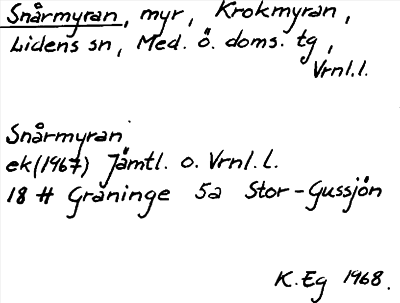 Snårmyran, myr, Krokmyran,
Lidens sn, Med. ö. doms. tg,
Vrnl.l.
Snårmyran
ek (1967) Jämtl. o. Vrnl. L.
18 H Graninge 5a Stor-Gussjön
K. Eg 1968.